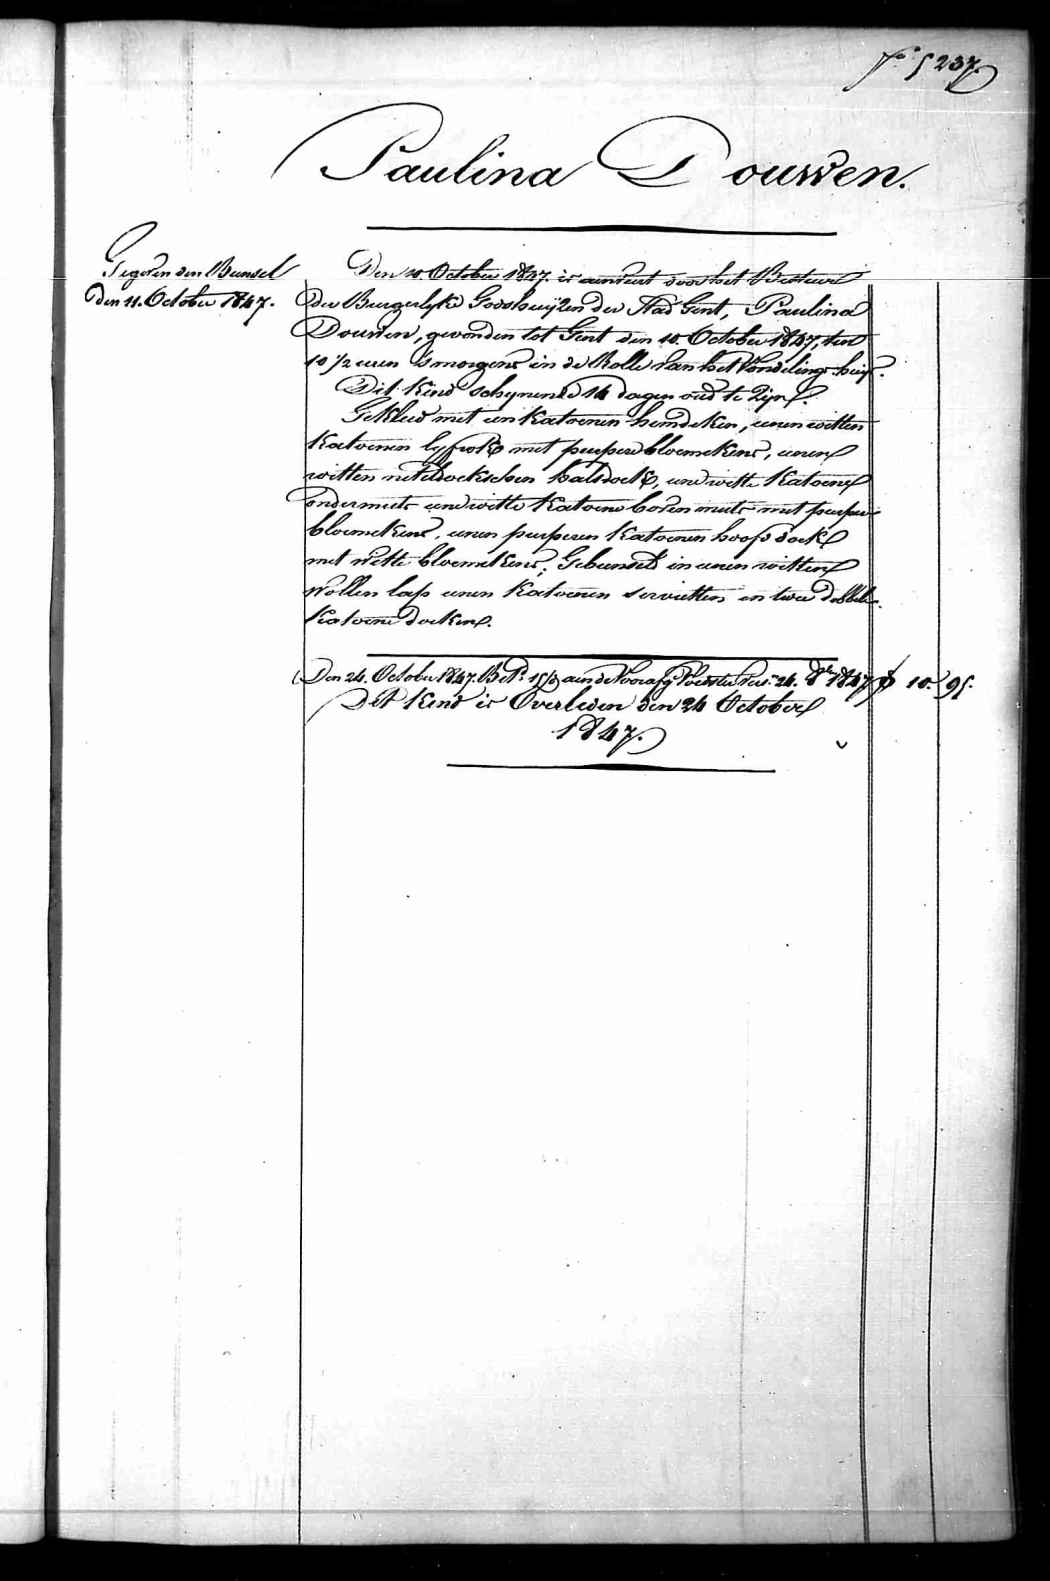 Fo. 5237.
Paulina Douwen.
Gegeven den Bunsel
den 11. October 1847.
Den 10 October 1847. is aenveert door het Bestuur
der Burgerlyke Godshuyzen der Stad Gent, Paulina
Douwen, gevonden tot Gent den 10. October 1847, ten
10 1/2 uren 's morgens in de Rolle van het Vondelinghuys.
Dit Kind schynende 14 dagen oud te Zyn.
Gekleed met een Katoenen hemdeken, eenen witten
Katoenen lyfrok met purpere bloemekens, eenen
witten neteldoekschen halsdoek, eene witte Katoene
ondermuts eene witte Katoene boven muts met purpere
bloemekens, eenen purperen Katoenen hoofd doek
met witte bloemekens; Gebunseld in eenen witten
wollen lap eenen Katoenen servietten en twee dobbele
Katoene doeken.
Den 24. October 1847. Bet. aen de Voorafg. Voedster 24. 8r 1847 10. 95.
Dit Kind is Overleden den 24 October
1847.